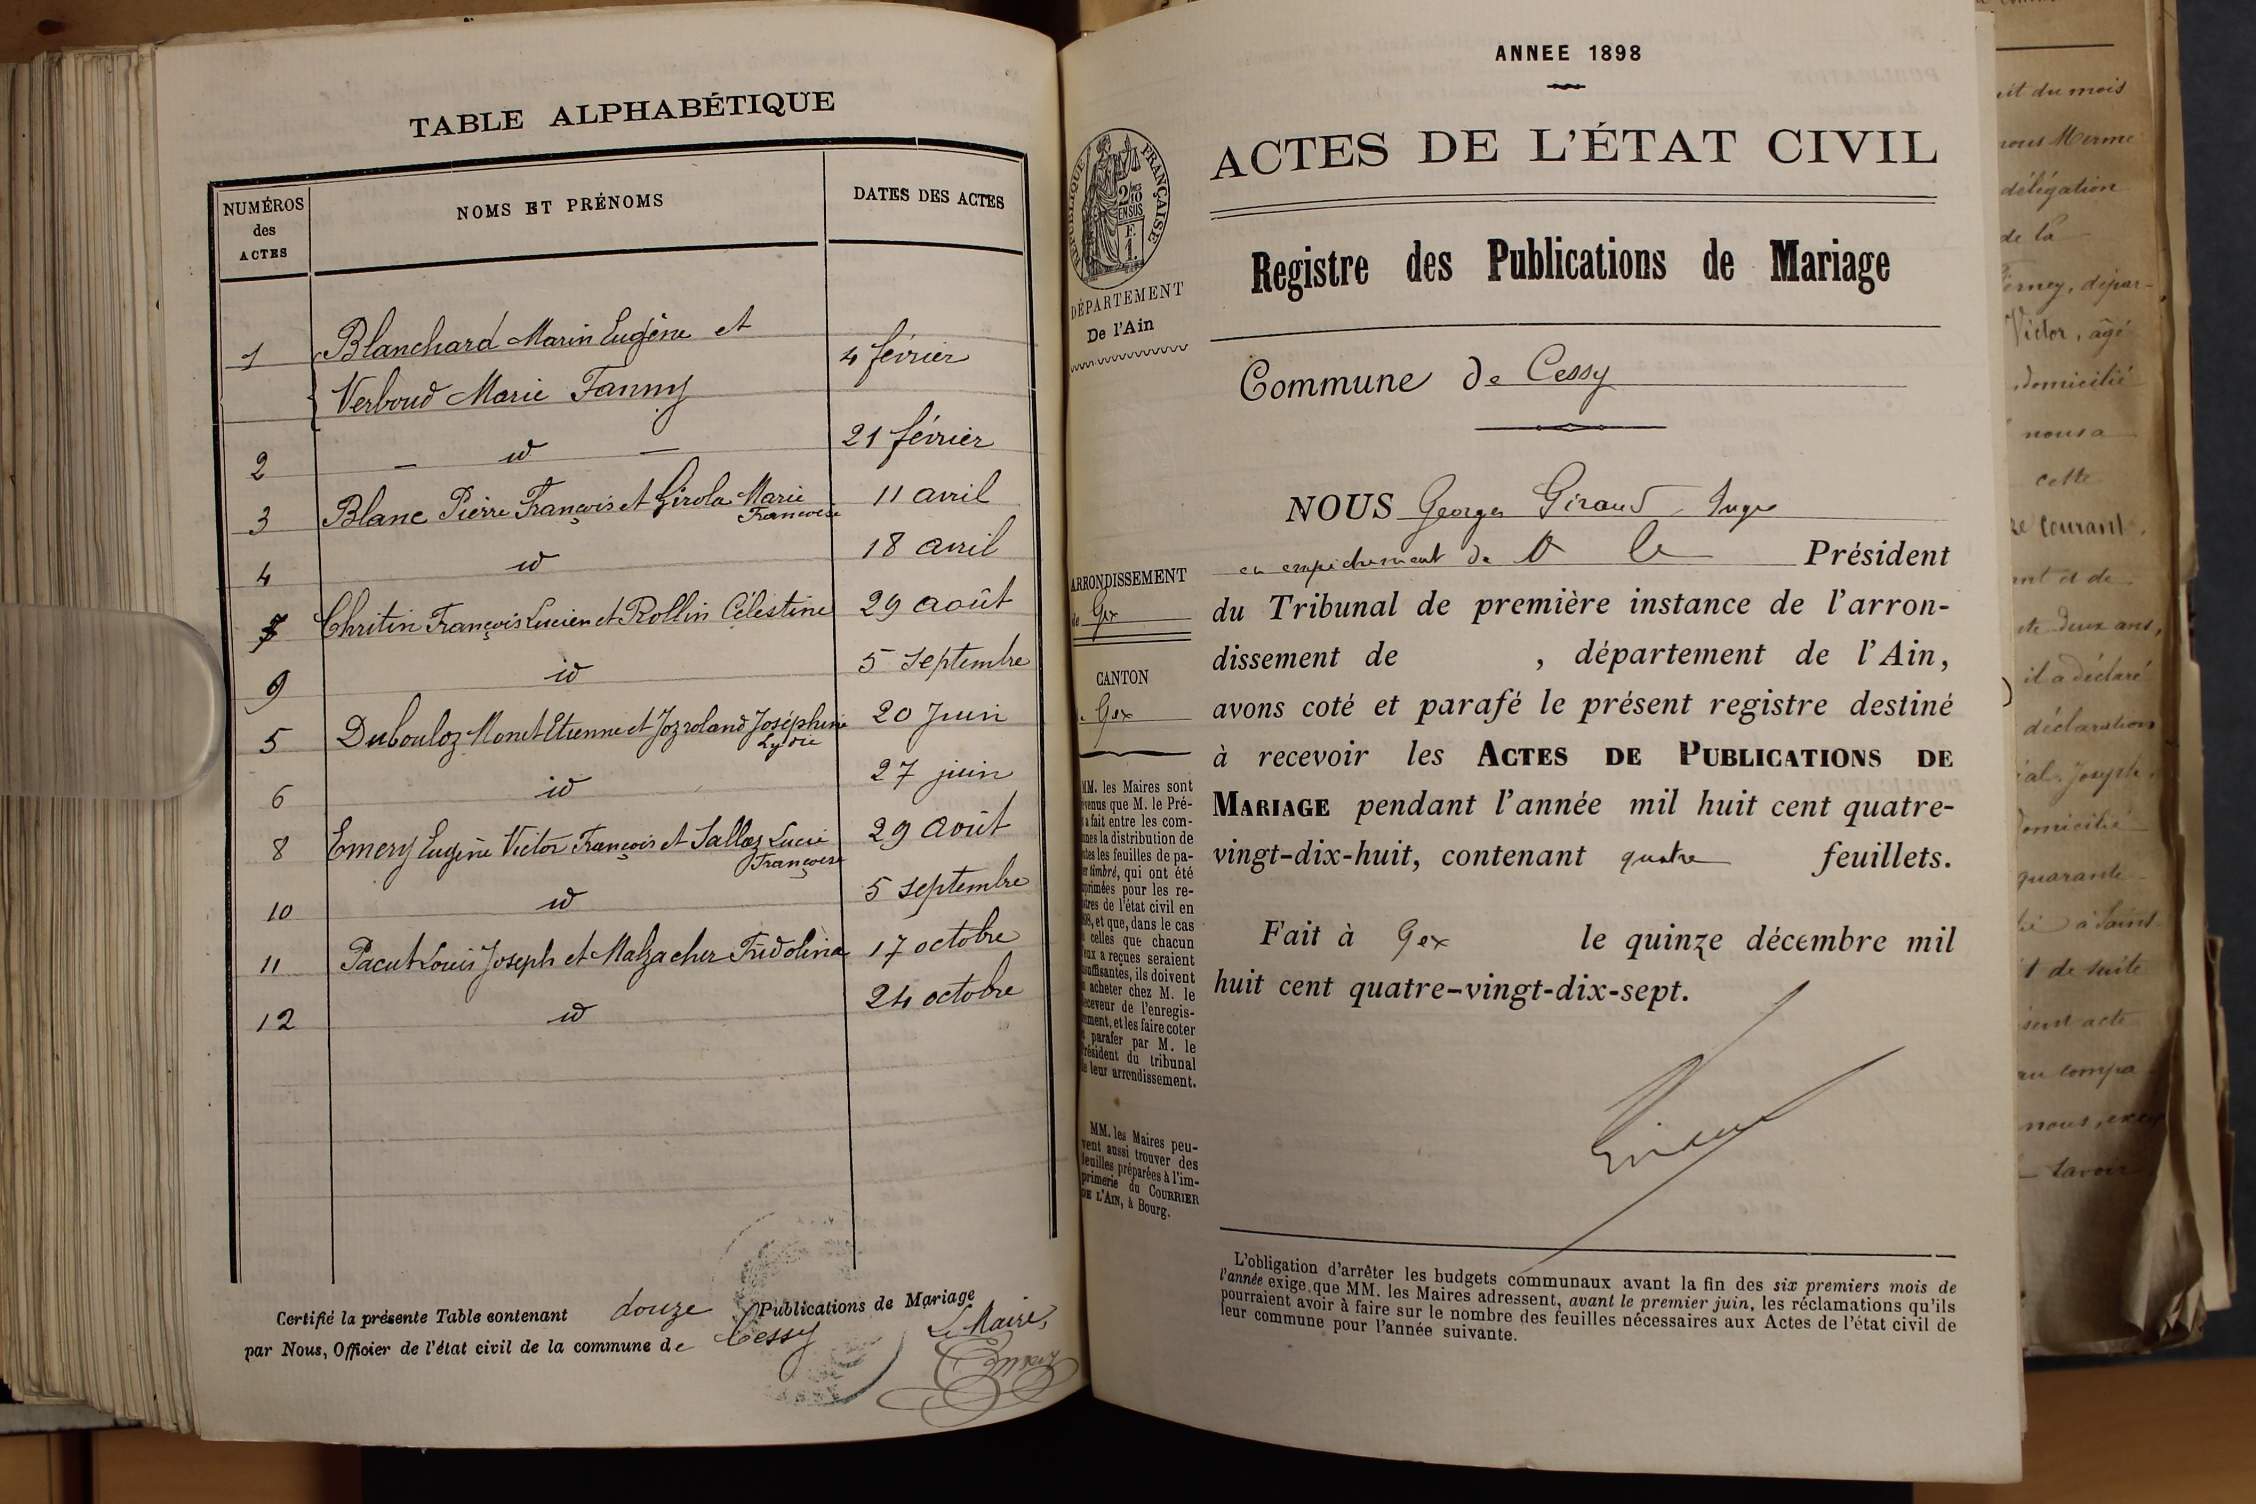 TABLE ALPHABÉTIQUE
NUMÉROS des ACTES
NOMS ET PRÉNOMS
DATES DES ACTES
1 Blanchard Marin Eugène et
Verboud Marie Fanny 4 février
2 — id — 21 février
3 Blanc Pierre François et Girola Marie Françoise 11 avril
4 id 18 avril
7 Chritin François Lucien et Rollin Célestine 29 août
9 id 5 septembre
5 Dubouloz Monet Etienne et Jozroland Joséphine Lydie 20 Juin
6 id 27 juin
8 Emery Eugène Victor François et Sallaz Lucie Françoise 29 Août
10 id 5 septembre
11 Pacut Louis Joseph et Malzacher Fridolina 17 octobre
12 id 24 octobre
Certifié la présente Table contenant douze Publications de Mariage
par Nous, Officier de l'état civil de la commune de Cessy Le Maire,
Emery
ANNEE 1898
ACTES DE L'ÉTAT CIVIL
Registre des Publications de Mariage
RÉPUBLIQUE FRANÇAISE
2/10
EN SUS
F.
1.
DÉPARTEMENT
De l'Ain
Commune de Cessy
NOUS Georges Giraud, Juge
en empêchement de le Président
du Tribunal de première instance de l'arron-
dissement de , département de l'Ain,
avons coté et parafé le présent registre destiné
à recevoir les ACTES DE PUBLICATIONS DE
MARIAGE pendant l'année mil huit cent quatre-
vingt-dix-huit, contenant quatre feuillets.
Fait à Gex le quinze décembre mil
huit cent quatre-vingt-dix-sept.
ARRONDISSEMENT
de Gex
CANTON
Gex
MM. les Maires sont
que M. le Pré-
a fait entre les com-
la distribution de
les feuilles de pa-
timbré, qui ont été
pour les re-
de l'état civil en
et que, dans le cas
celles que chacun
a reçues seraient
ils doivent
acheter chez M. le
de l'enregis-
et les faire coter
parafer par M. le
Président du tribunal
de leur arrondissement.
MM. les Maires peu-
vent aussi trouver des
feuilles préparées à l'im-
primerie du COURRIER
DE L'AIN, à Bourg.
L'obligation d'arrêter les budgets communaux avant la fin des six premiers mois de
l'année exige que MM. les Maires adressent, avant le premier juin, les réclamations qu'ils
pourraient avoir à faire sur le nombre des feuilles nécessaires aux Actes de l'état civil de
leur commune pour l'année suivante.
du mois
délégation
de la
Victor, âgé
domicilié
nous a
cette
courant.
et de
deux ans,
il a déclaré
déclaration
Joseph
domicilié
quarante
à Saint
de suite
acte
nous,
savoir